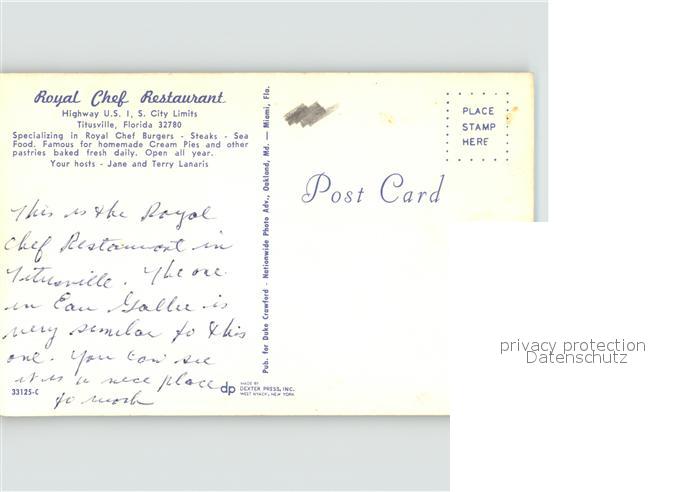 Royal Chef Restaurant
Highway U.S. 1, S. City Limits
Titusville, Florida 32780
Specializing in Royal Chef Burgers - Steaks - Sea
Food. Famous for homemade Cream Pies and other
pastries baked fresh daily. Open all year.
Your hosts - Jane and Terry Lanaris
This is the Royal
Chef Restaurant in
Titusville. The one
in Eau Gallie is
very similar to this
one. You can see
it is a nice place
to work
33125-C
dp
MADE BY
DEXTER PRESS, INC.
WEST NYACK, NEW YORK
Pub. for Duke Crawford - Nationwide Photo Adv., Oakland, Md. — Miami, Fla.
Post Card
PLACE
STAMP
HERE
privacy protection
Datenschutz